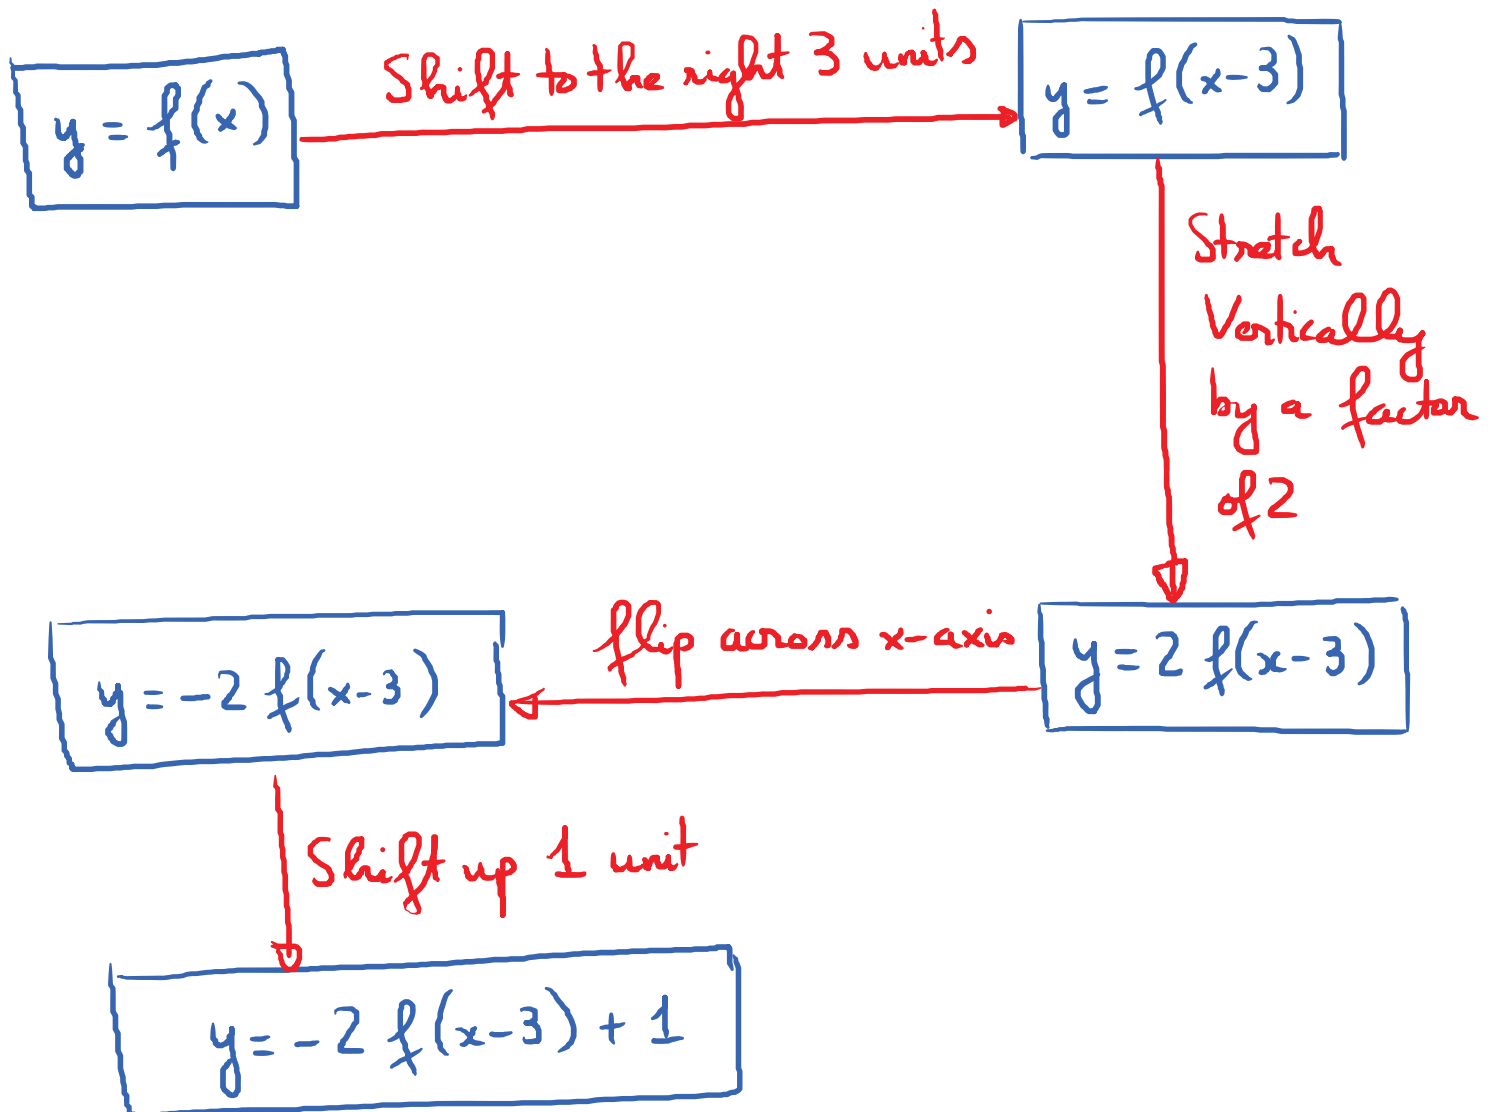 y = f(x)
Shift to the right 3 units
y = f(x-3)
Stretch
Vertically
by a factor
of 2
y = 2 f(x-3)
flip across x-axis
y = -2 f(x-3)
Shift up 1 unit
y = -2 f(x-3) + 1